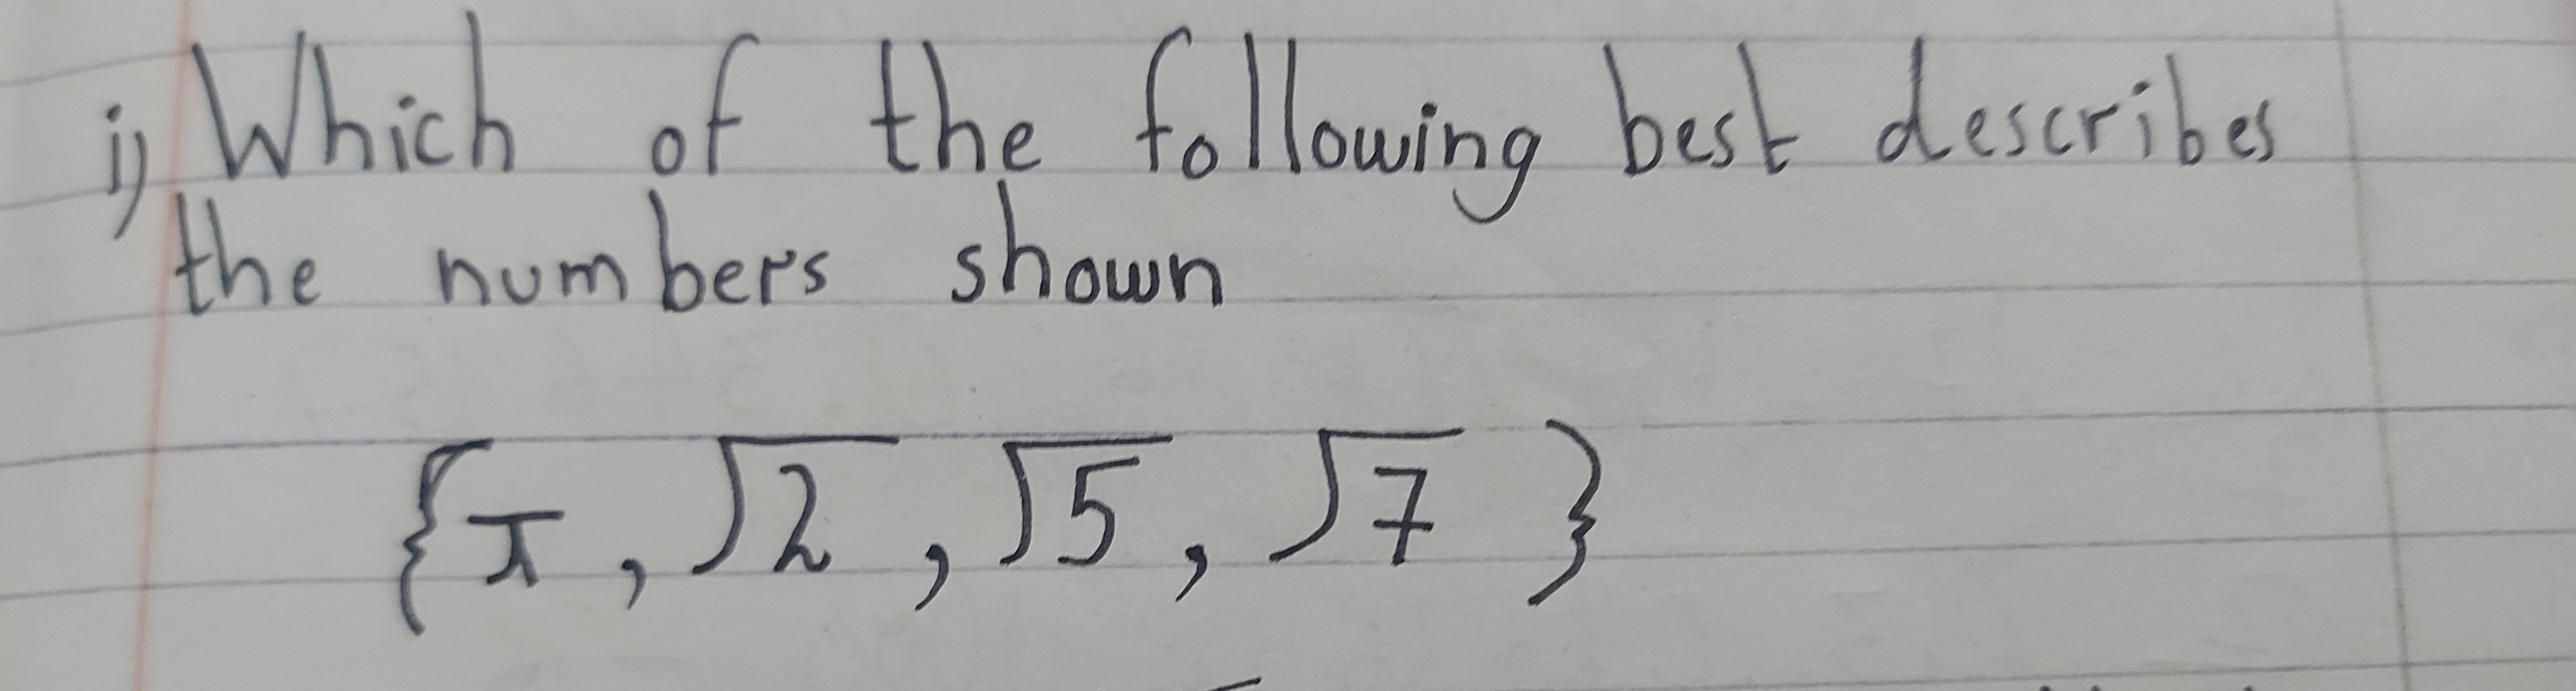 i) Which of the following best describes
the numbers shown
{π, √2, √5, √7}